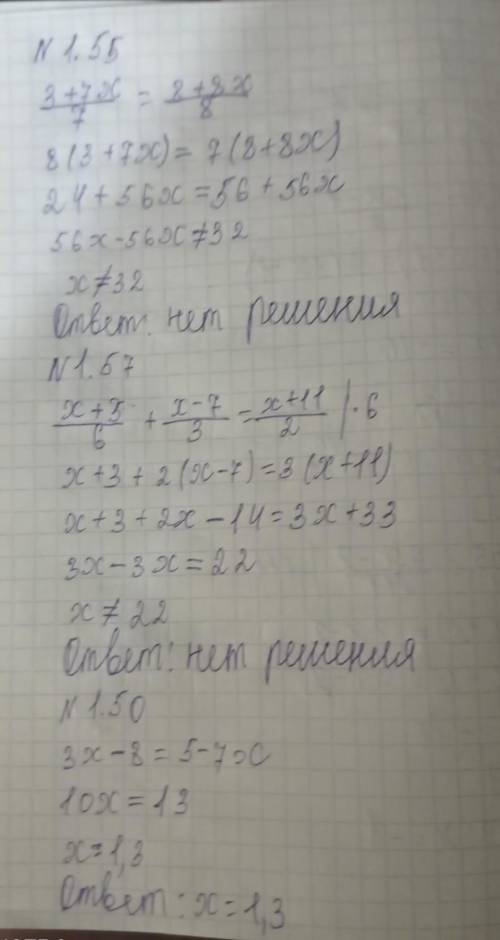 N 1.55
(3+7x)/7 = (8+8x)/8
8(3+7x) = 7(8+8x)
24+56x=56+56x
56x-56x≠32
x≠32
Ответ: нет решения
N 1.57
(x+3)/6 + (x-7)/3 = (x+11)/2 |·6
x+3+2(x-7)=3(x+11)
x+3+2x-14=3x+33
3x-3x=22
x≠22
Ответ: нет решения
N 1.50
3x-8=5-7x
10x=13
x=1,3
Ответ: x=1,3